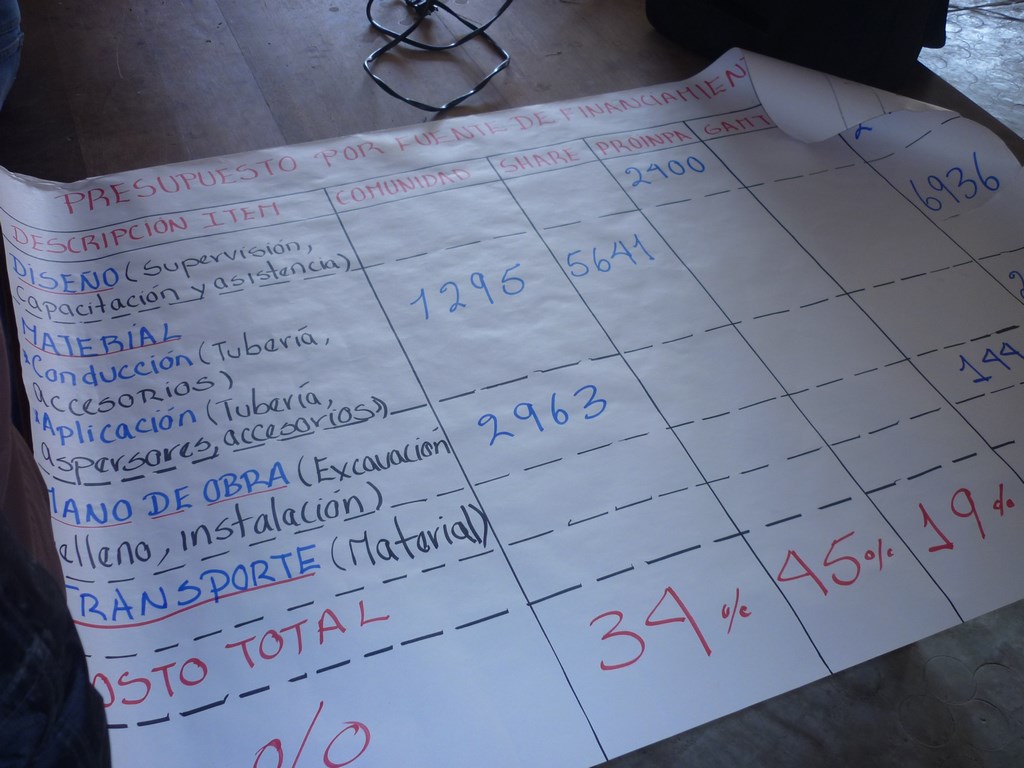 PRESUPUESTO POR FUENTE DE FINANCIAMIEN
DESCRIPCION ITEM COMUNIDAD SHARE PROINPA
DISEÑO (Supervisión, 2400
capacitación y asistencia) 6936
MATERIAL 1295 5641
*Conducción (Tubería,
accesorios)
*Aplicación (Tubería, 144
aspersores, accesorios)
MANO DE OBRA (Excavación 2963
elleno, instalación)
TRANSPORTE (Material)
OSTO TOTAL
% 34% 45% 19%